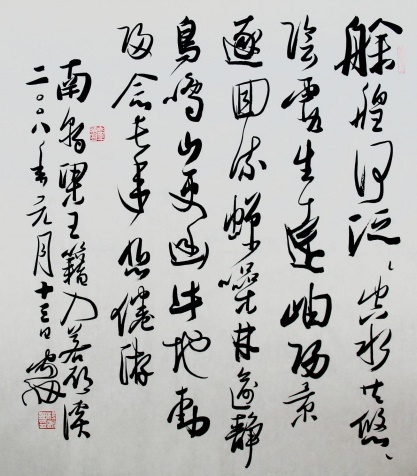 艅艎何泛泛空水共悠悠
陰霞生遠岫陽景
逐回流蟬噪林逾静
鳥鳴山更幽此地動
歸念長年悲倦游
南朝梁王籍入若耶溪
二〇〇八年元月十三日